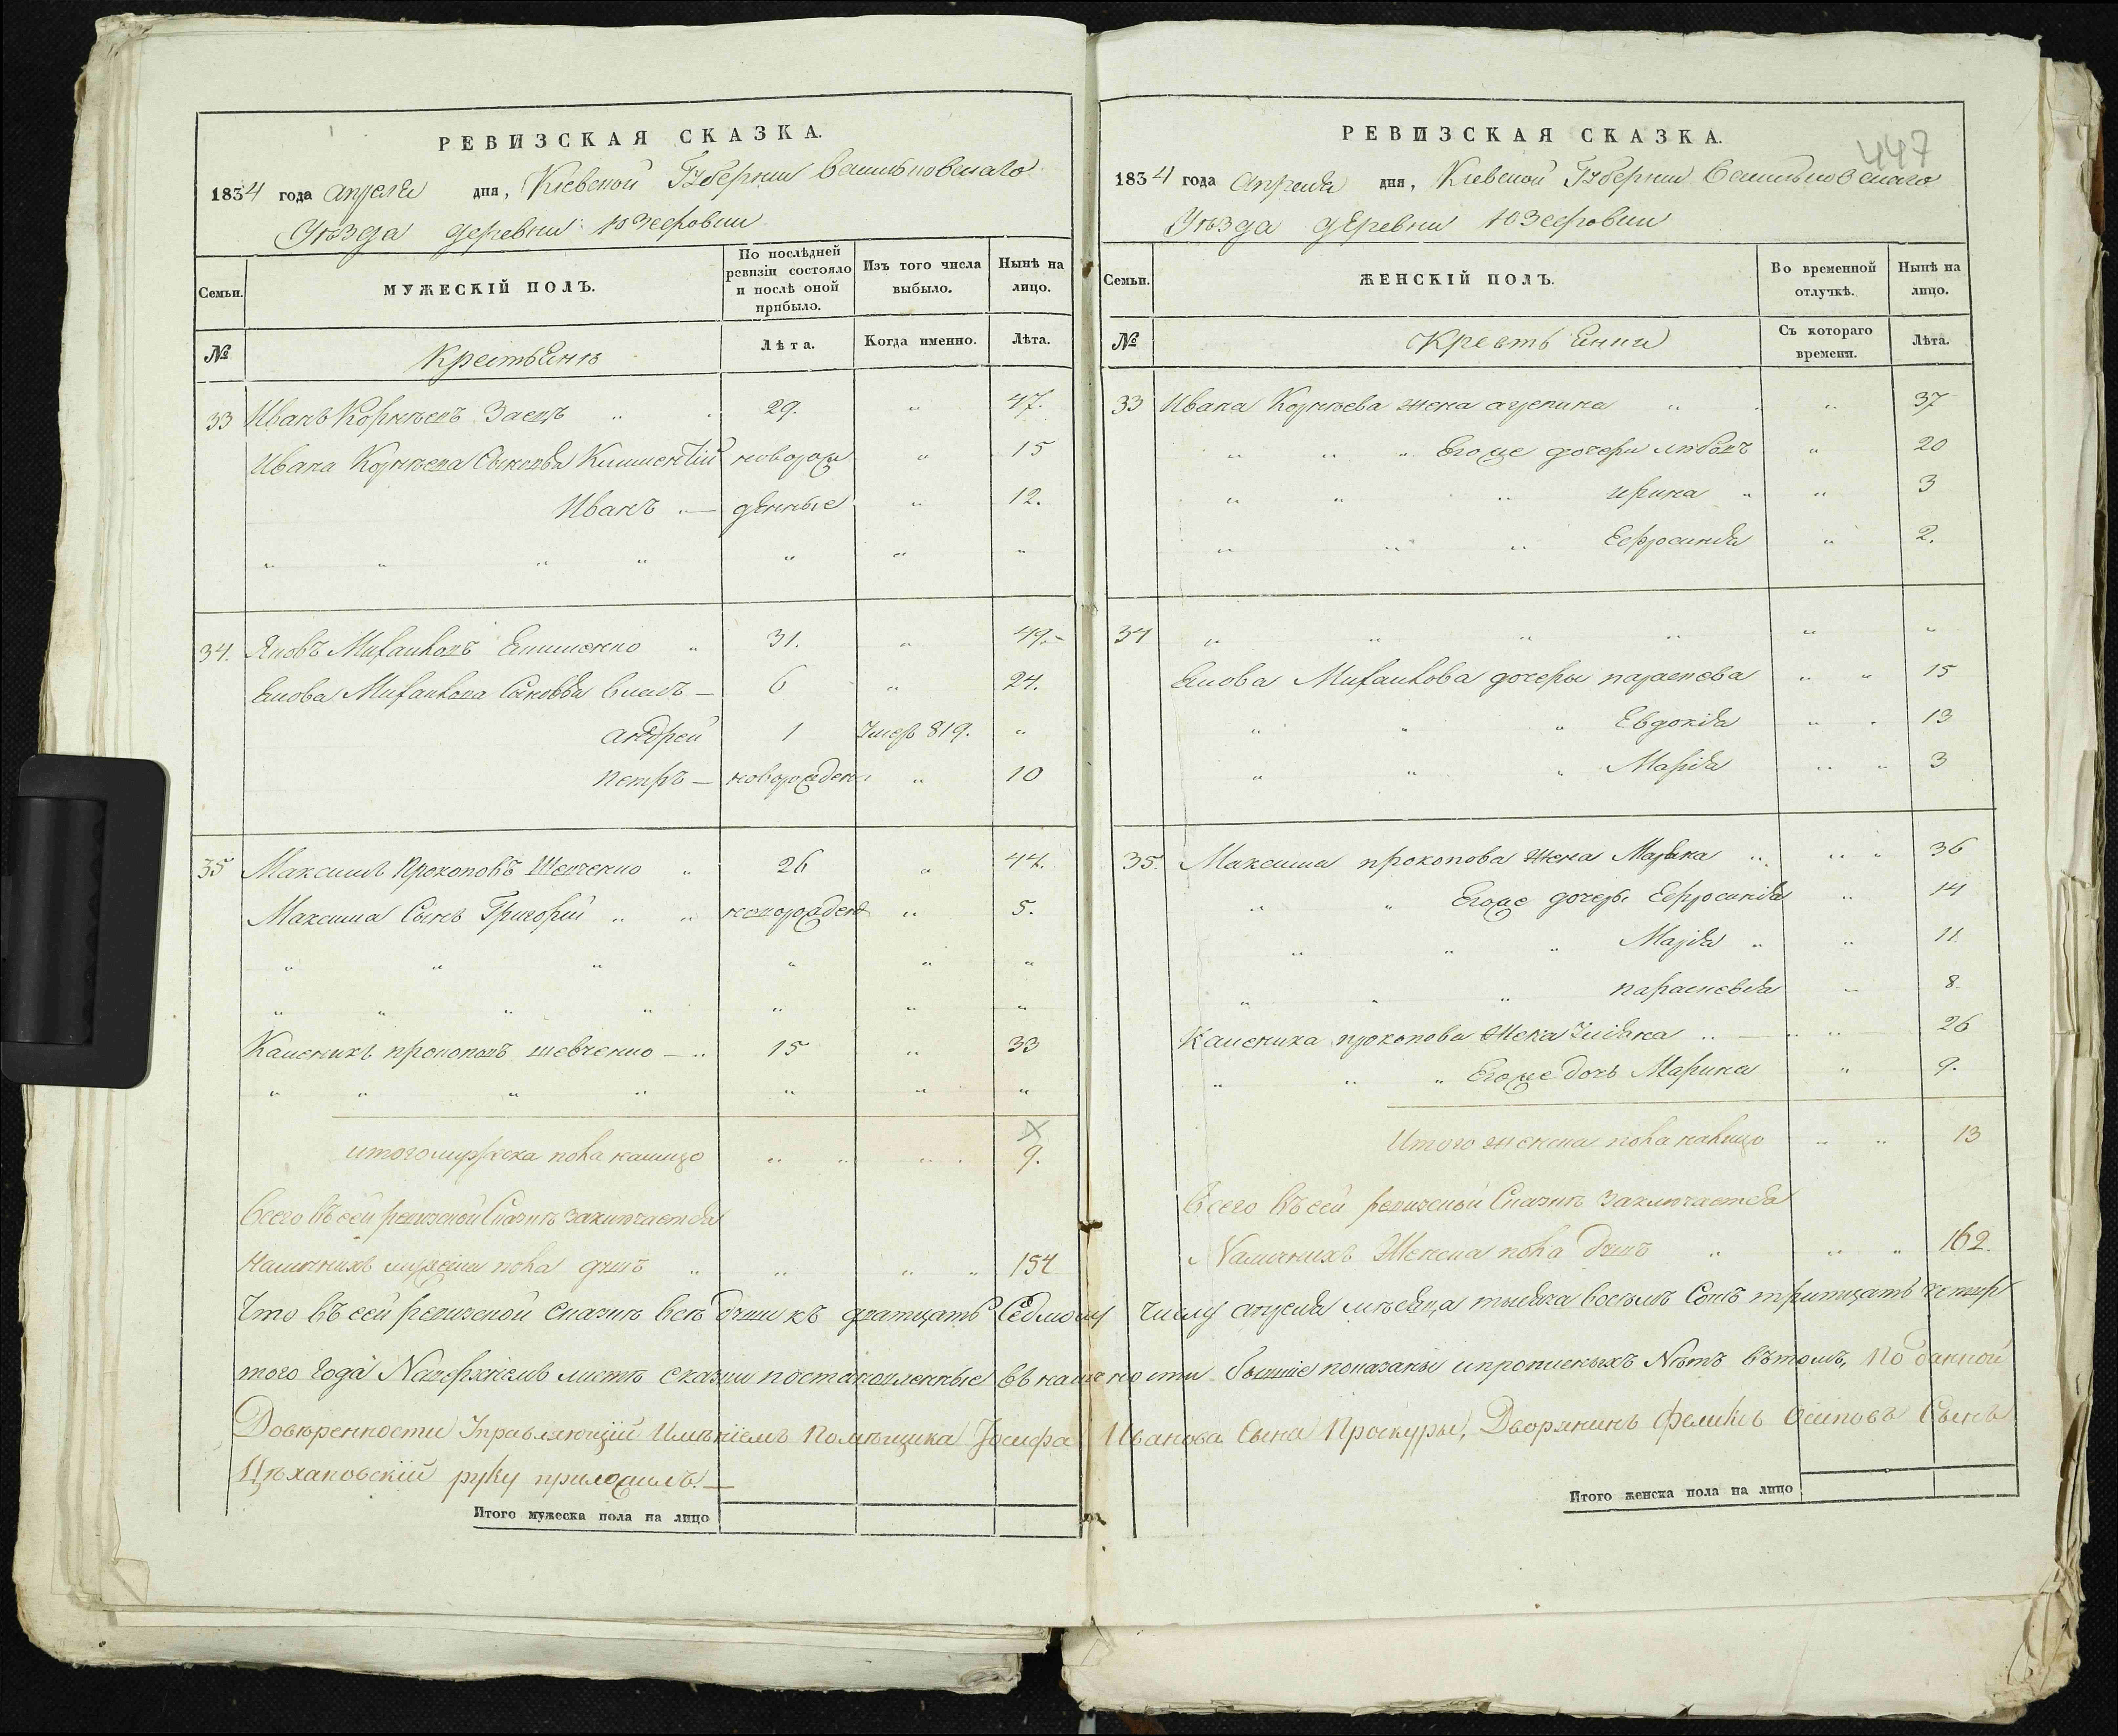 РЕВИЗСКАЯ СКАЗКА.
1834 года апреля дня, Кіевской Губерніи Васильковскаго
Уѣзда деревни Юзефовки
Семьи.
МУЖЕСКІЙ ПОЛЪ.
По послѣдней ревизіи состояло и послѣ оной прибыло.
Изъ того числа выбыло.
Нынѣ на лицо.
№
Крестьянъ
Лѣта.
Когда именно.
Лѣта.
33 Иванъ Корнѣевъ Заецъ " 29. " 47.
Ивана Корнѣева Сыновья Климентій новорож " 15
Иванъ — денные " 12.
" " " " " " "
34. Яковъ Михайловъ " 31. " 49.
Якова Михайлова Сыновья Власъ — 6 " 24.
андрей 1 Умеръ 819. "
петръ — новорожден " 10
35 Максимъ Прокоповъ Шевченко " 26 " 44.
Максима Сынъ Григорій " " новорожден " 5.
" " " " " "
" " " " " " "
Каленикъ прокоповъ шевченко — " 15 " 33
" " " " " " "
итого мужеска пола налицо " " " " 9.
Всего въ сей ревизской Сказкѣ заключается
Наличнихъ мужеска пола душъ " " " " 154
РЕВИЗСКАЯ СКАЗКА.
447
1834 года Апреля дня, Кіевской Губерніи Васильковскаго
Уѣзда деревни Юзефовки
Семьи.
ЖЕНСКІЙ ПОЛЪ.
Во временной отлучкѣ.
Нынѣ на лицо.
№
Крестьянки
Съ котораго времени.
Лѣта.
33 Ивана Корнѣева жена агрепина " " " 37
" " " Егоже дочери любовъ " 20
" " " ирина " " 3
" " " Ефросинія " 2.
34 " " " " " "
Якова Михайлова дочеры параскева " " 15
" " " Евдокія " " 13
" " " Марія " " 3
35. Максима прокопова жена Марина " " " 36
" " Егоже дочеры Ефросинія " 14
" " " Марія " " 11.
" " " параскевія " 8
Каленика прокопова жена Уліяна " — " " 26
" " " Егоже дочь Марина " 9.
Итого женска пола налицо " " 13
Всего въ сей ревизской Сказкѣ заключается
Наличнихъ Женска пола душъ " " " 162.
Что въ сей ревизской сказкѣ всѣ души къ дватцать Седмому числу апреля мѣсяца тысяча восемь Сотъ тритцать четвер
того Года листѣ сказки постановленные въ наличности бывшіе показаны и прописныхъ Нѣтъ въ томъ, По данной
Довѣренности Управляющій Имѣніемъ Помѣщика Іосифа Иванова Сына Проскуры, Дворянинъ Феликсъ Осиповъ Сынъ
Цѣхановскій руку приложилъ. —
Итого мужеска пола на лицо
Итого женска пола на лицо